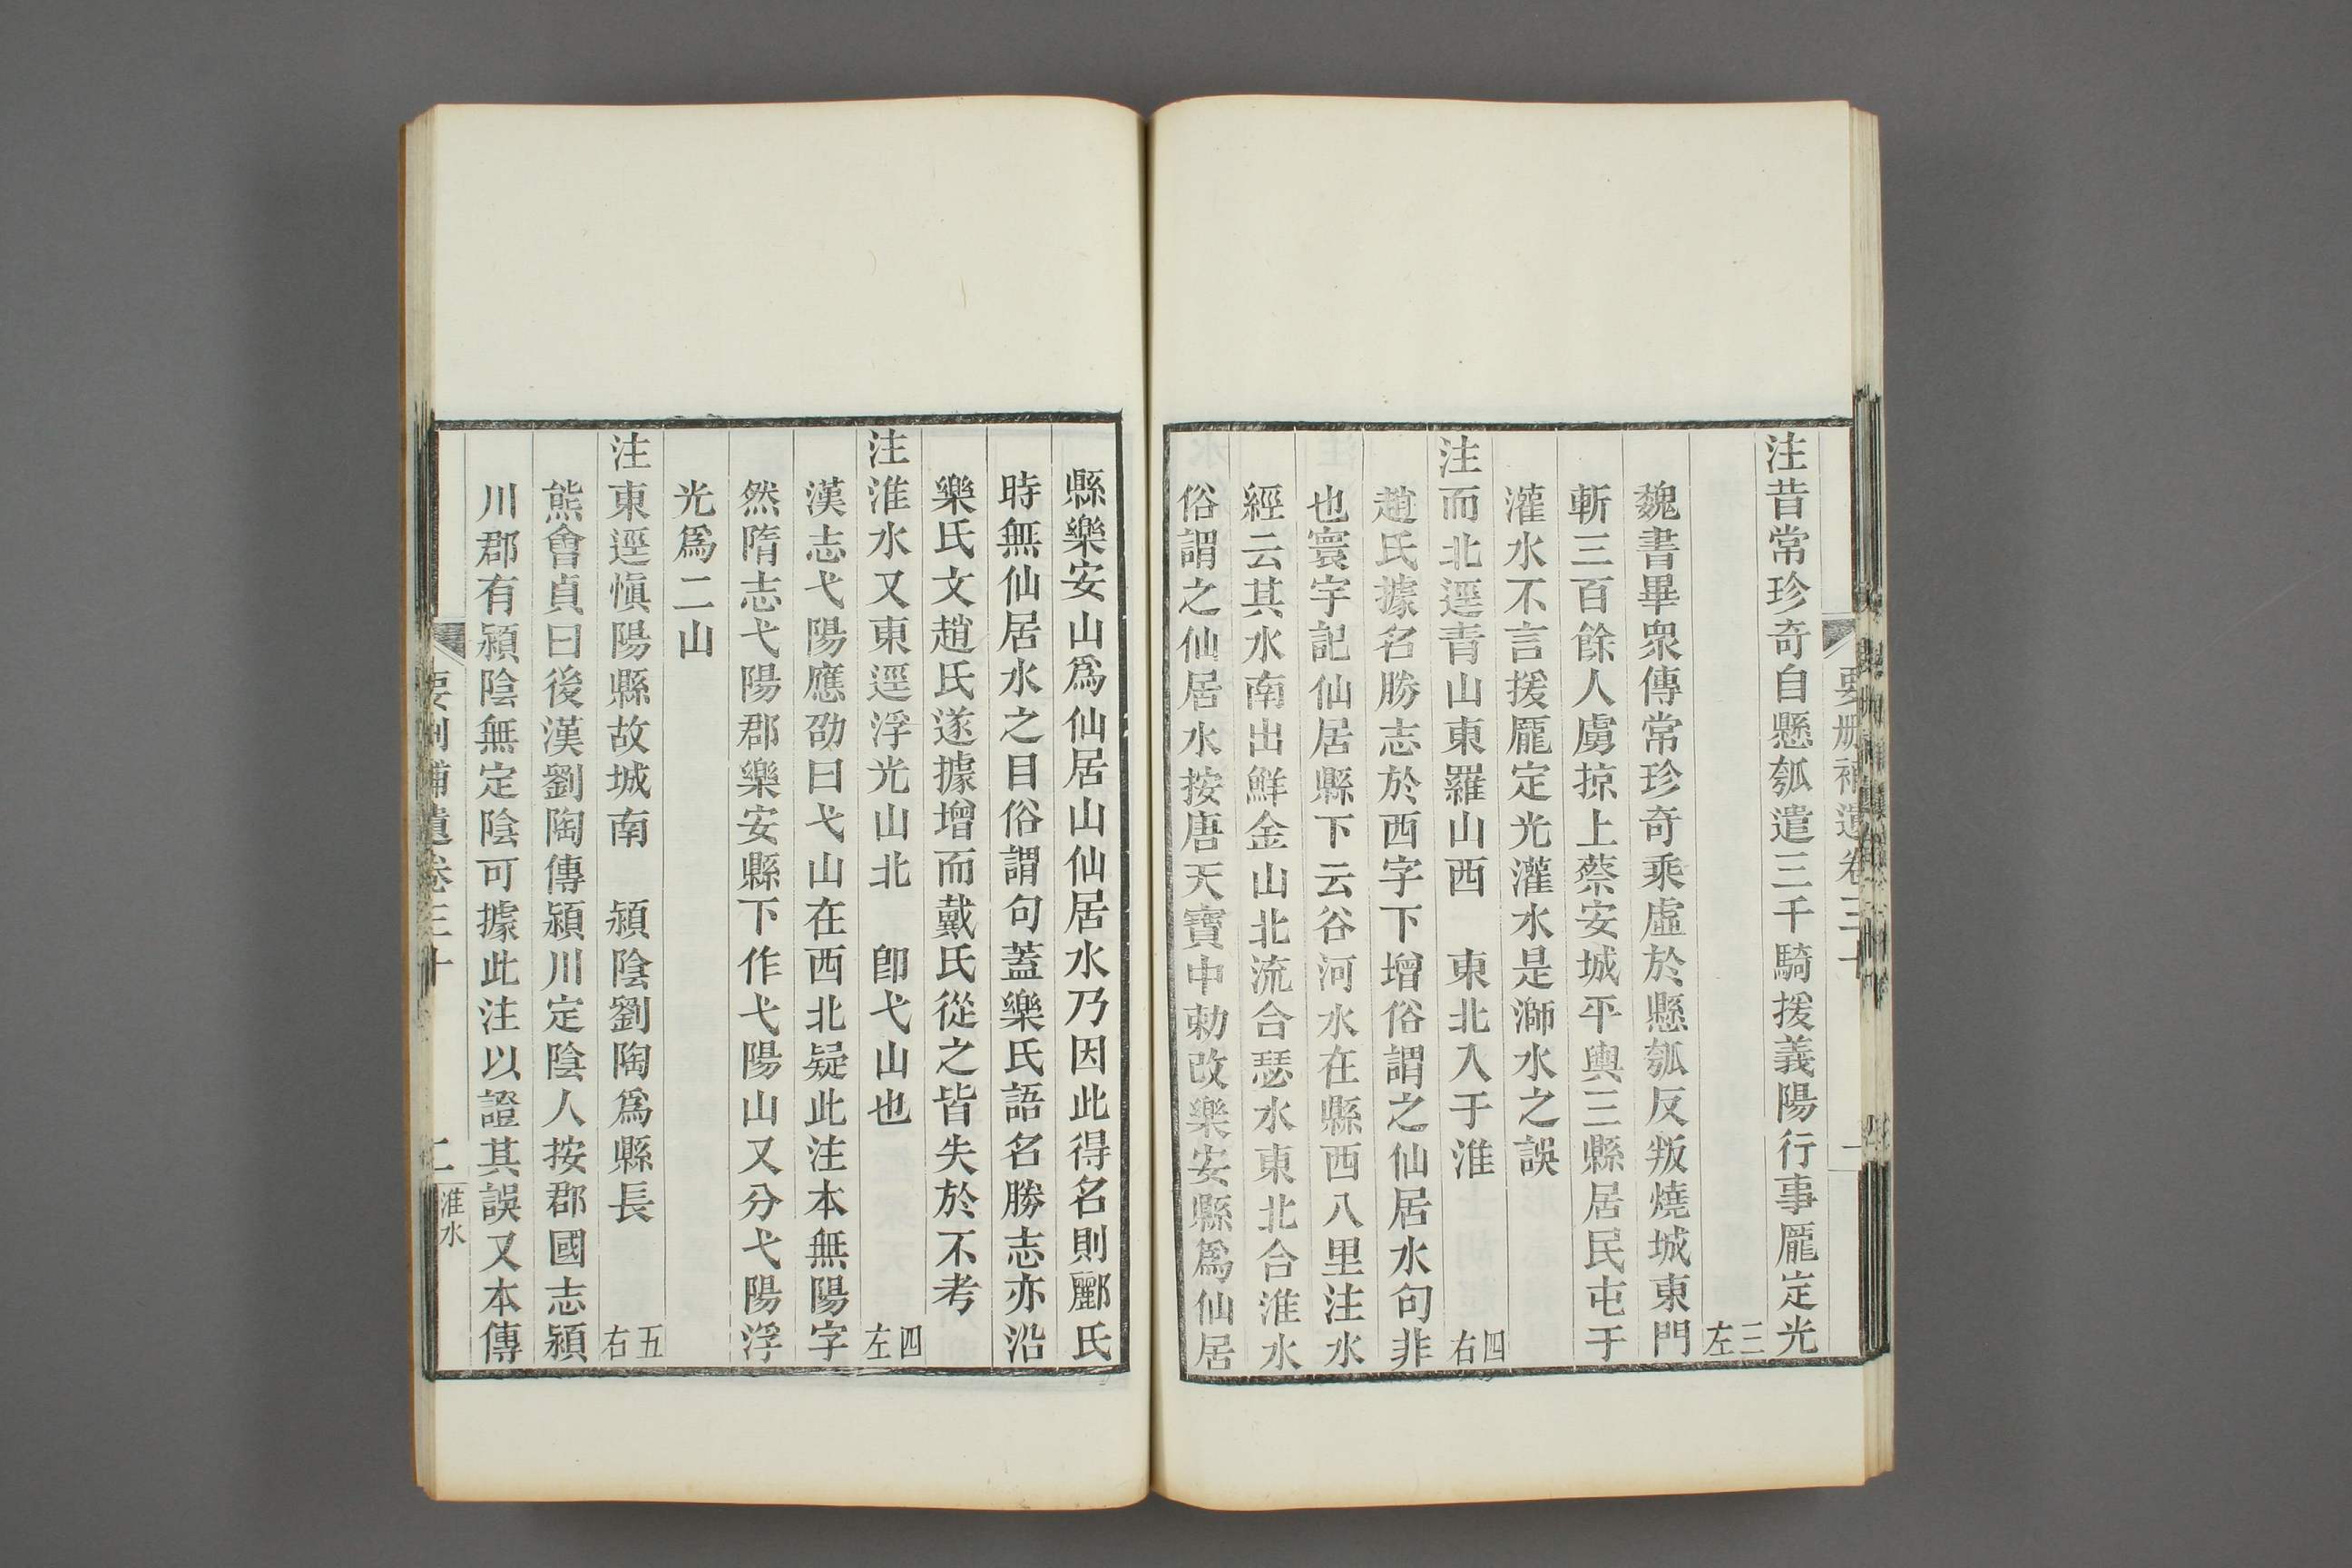 要刪補遺卷三十
一
注昔常珍奇自懸瓠遣三千騎援義陽行事龎定光
三左
魏書畢衆傳常珍奇乘虛於懸瓠反叛燒城東門
斬三百餘人虜掠上蔡安城平輿三縣居民屯于
灌水不言援龎定光灌水是溮水之誤
注而北逕青山東羅山西　東北入于淮　四右
趙氏據名勝志於西字下增俗謂之仙居水句非
也寰宇記仙居縣下云谷河水在縣西八里注水
經云其水南出鮮金山北流合瑟水東北合淮水
俗謂之仙居水按唐天寶中勅改樂安縣爲仙居
縣樂安山爲仙居山仙居水乃因此得名則酈氏
時無仙居水之目俗謂句蓋樂氏語名勝志亦沿
樂氏文趙氏遂據增而戴氏從之皆失於不考
注淮水又東逕浮光山北　卽弋山也　四左
漢志弋陽應劭曰弋山在西北疑此注本無陽字
然隋志弋陽郡樂安縣下作弋陽山又分弋陽浮
光爲二山
注東逕愼陽縣故城南　潁陰劉陶爲縣長　五右
熊會貞曰後漢劉陶傳潁川定陰人按郡國志潁
川郡有潁陰無定陰可據此注以證其誤又本傳
要刪補遺卷三十
二
淮水